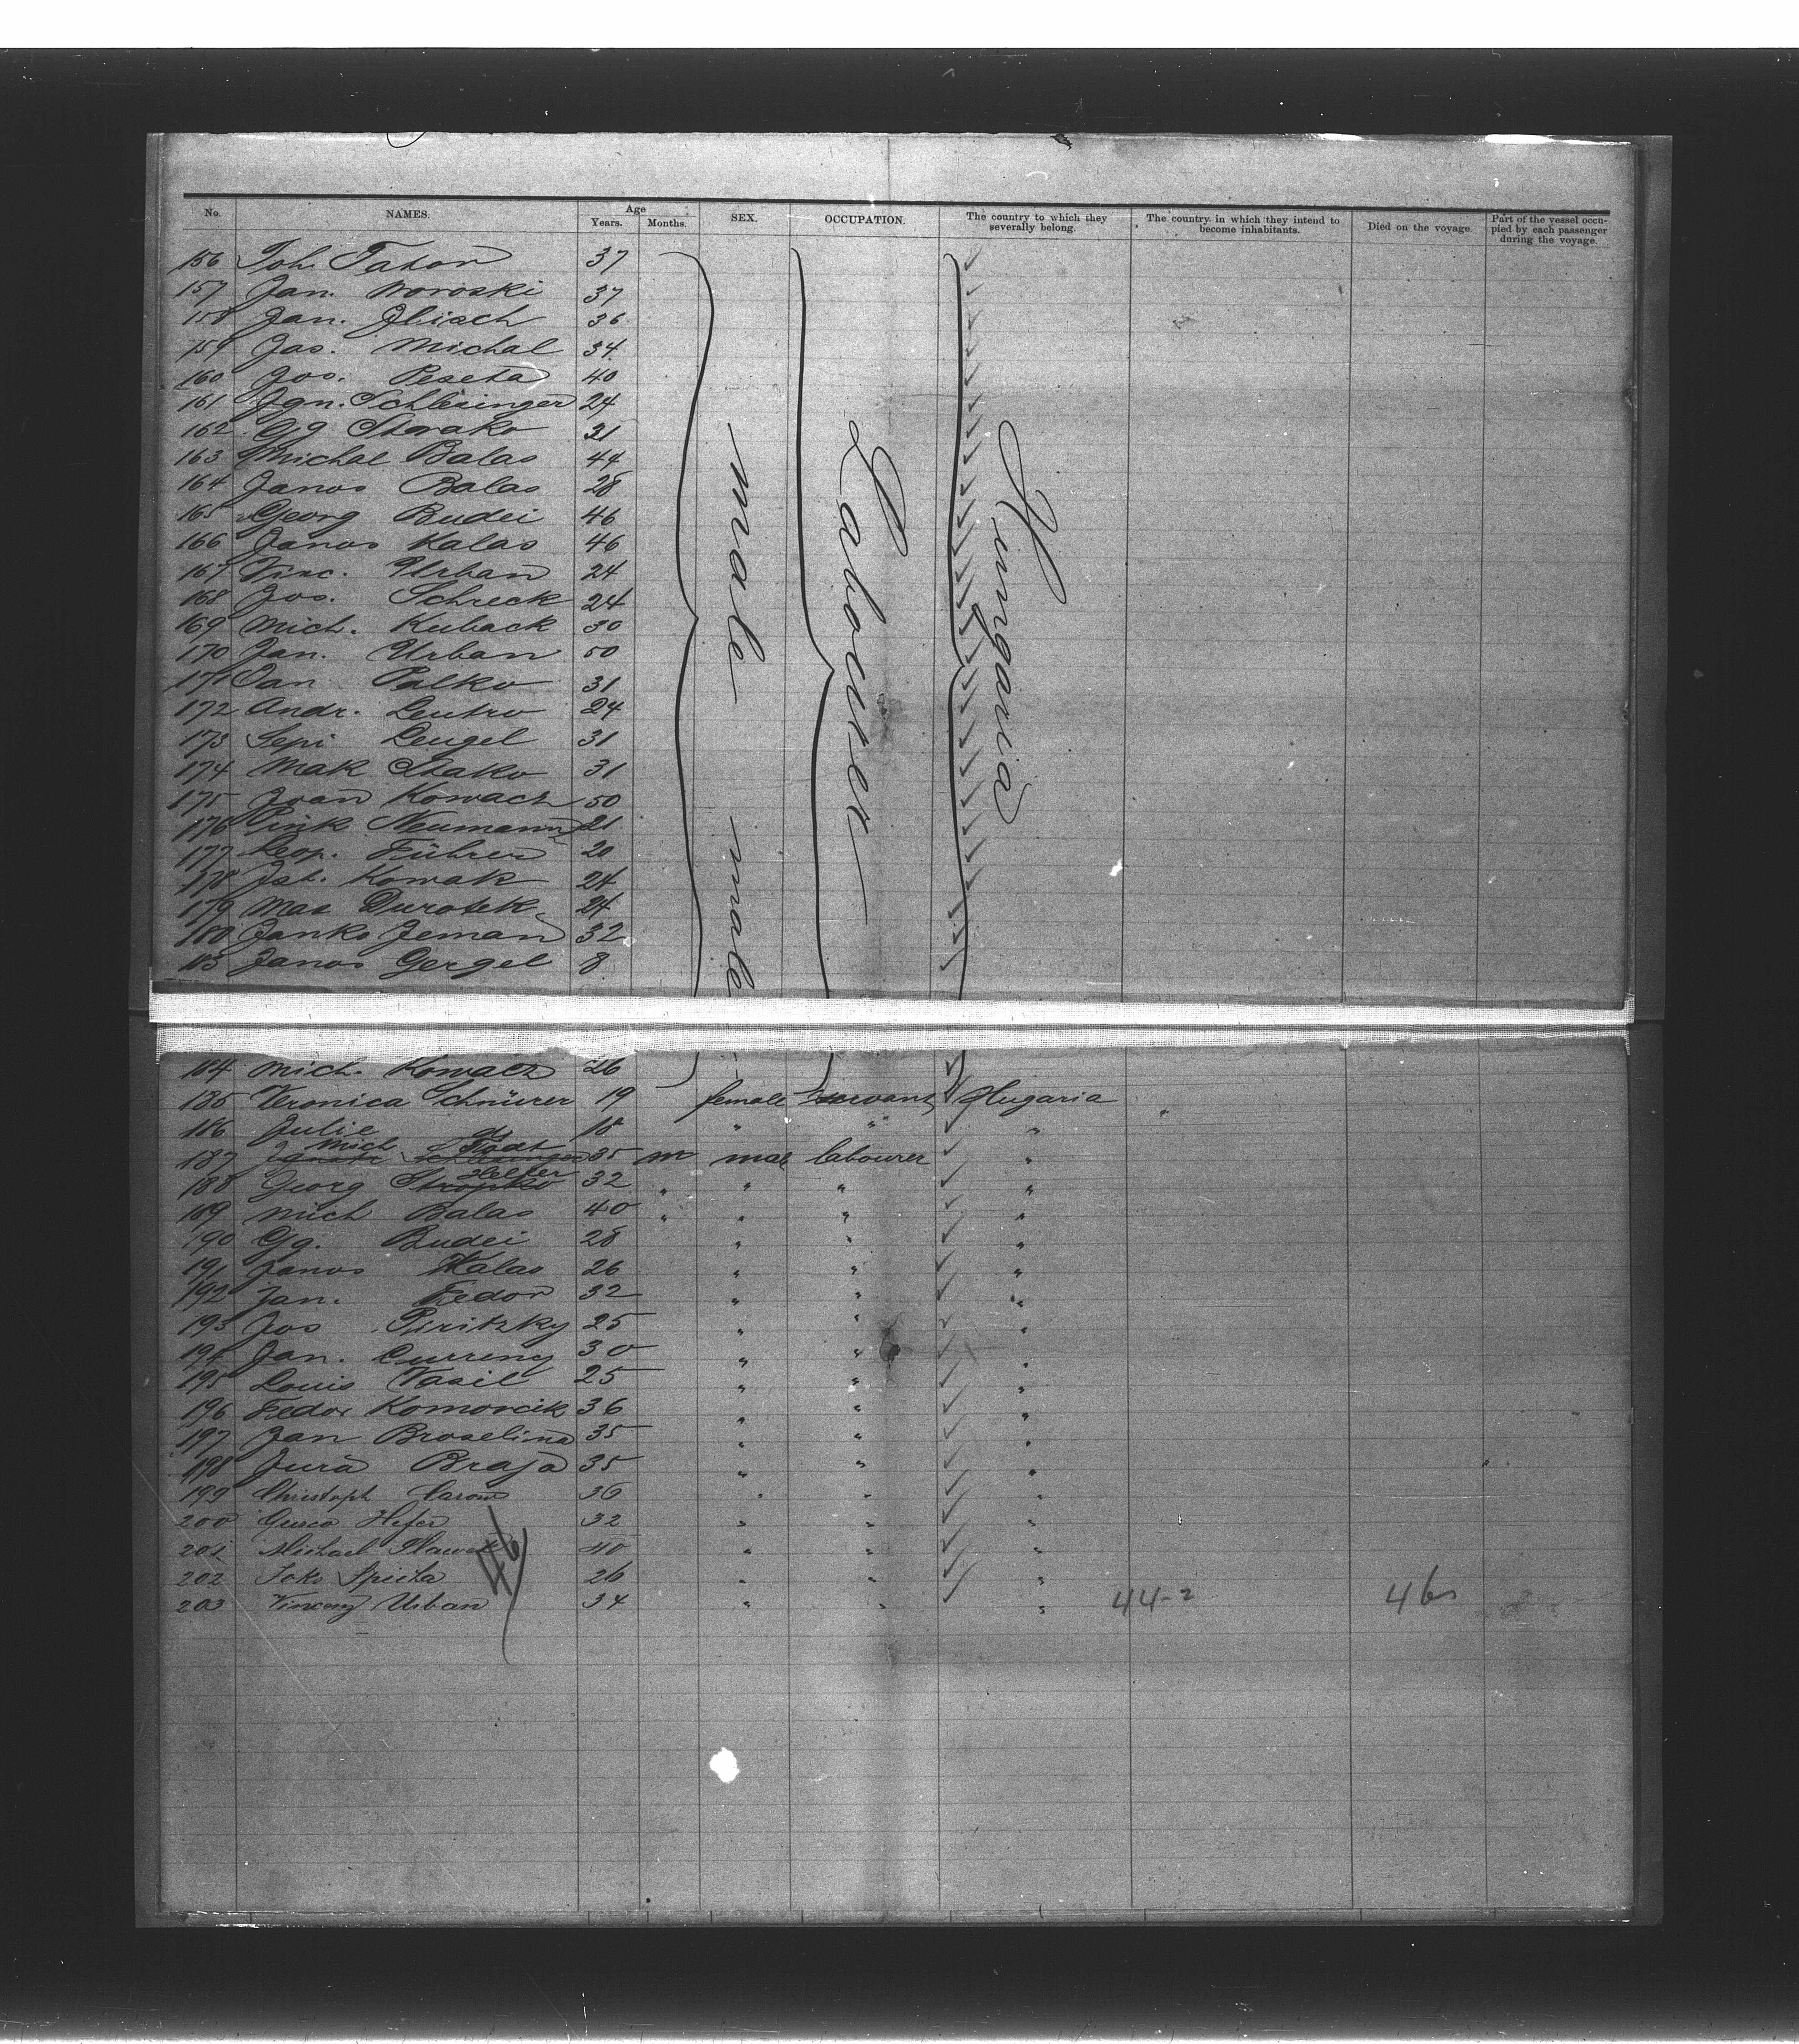 No. NAMES. Age Years. Months. SEX. OCCUPATION. The country to which they severally belong. The country in which they intend to become inhabitants. Died on the voyage. Part of the vessel occupied by each passenger during the voyage.
156 Joh. 37
157 Jan. Woroski 37
158 Jan. 36
159 Jas. Michal 34
160 Jos. Peseta 40
161 Ign. Schlesinger 24
162 Gg 31
163 Michal Balas 44
164 Janos Balas 28
165 Georg Budei 46
166 Janos Kalas 46
167 Vinc. Urban 24
168 Jos. Schreck 24
169 Mich. Kuback 30
170 Jan. Urban 50
171 Jan Palko 31
172 Andr. 24
173 Sepi Lengel 31
174 Mak 31
175 Ivan Kowach 50
176 Pink Neumann 21
177 Leop. Führer 20
178 Joh. Kowak 24
179 Max Durosek 24
180 Janko Jeman 32
183 Janos Gergel 8
male male
Labourer
Hungaria
184 Mich. Kowach 26
185 Veronica Schnürer 19 female servant Hugaria
186 Julie do 18 " " "
187 Mich 35 m male labourer "
188 Georg 32 " " " "
189 Mich Balas 40 " " " "
190 Gg. Budei 28 " " "
191 Janos Kalas 26 " " "
192 Jan. Fedor 32 " " "
193 Jos Piritzky 25 " " "
194 Jan. Curreny 30 " " "
195 Louis Vasil 25 " " "
196 Fedor Komorcik 36 " " "
197 Jan Broselina 35 " " "
198 Jura Braja 35 " " "
199 Christoph 36 " " "
200 Hefer 32 " " "
201 Michael 40 " " "
202 26 " " "
203 Vincenz Urban 34 " " " 44-2 46
46